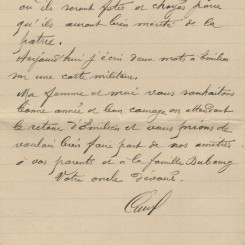 où ils seront fêtés et choyés parce
qu'ils auront bien mérité de la
patrie.
Aujourd'hui j'écris deux mots à Emilien
sur une carte militaire.
Ma femme et moi vous souhaitons
bonne année et bon courage en attendant
le retour d'Emilien et vous prions de
vouloir bien faire part de nos amitiés
à vos parents et à la famille Dubourg
Votre oncle dévoué.